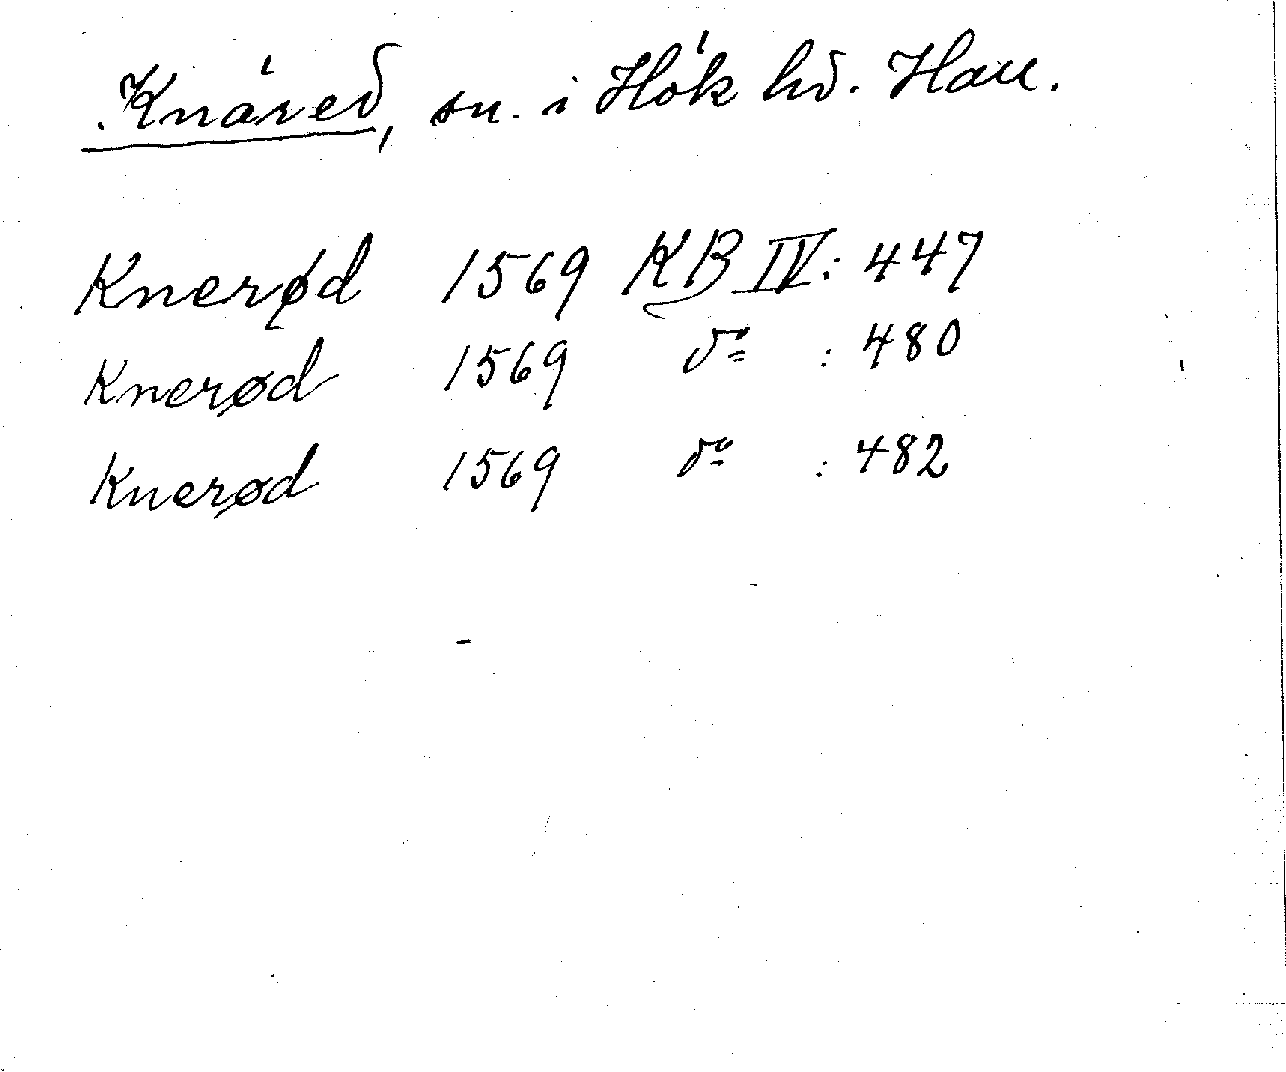 Knäred, sn. i Höks hd. Hall.
Knerød 1569 KB IV: 447
Knerød 1569 do : 480
Knerød 1569 do : 482